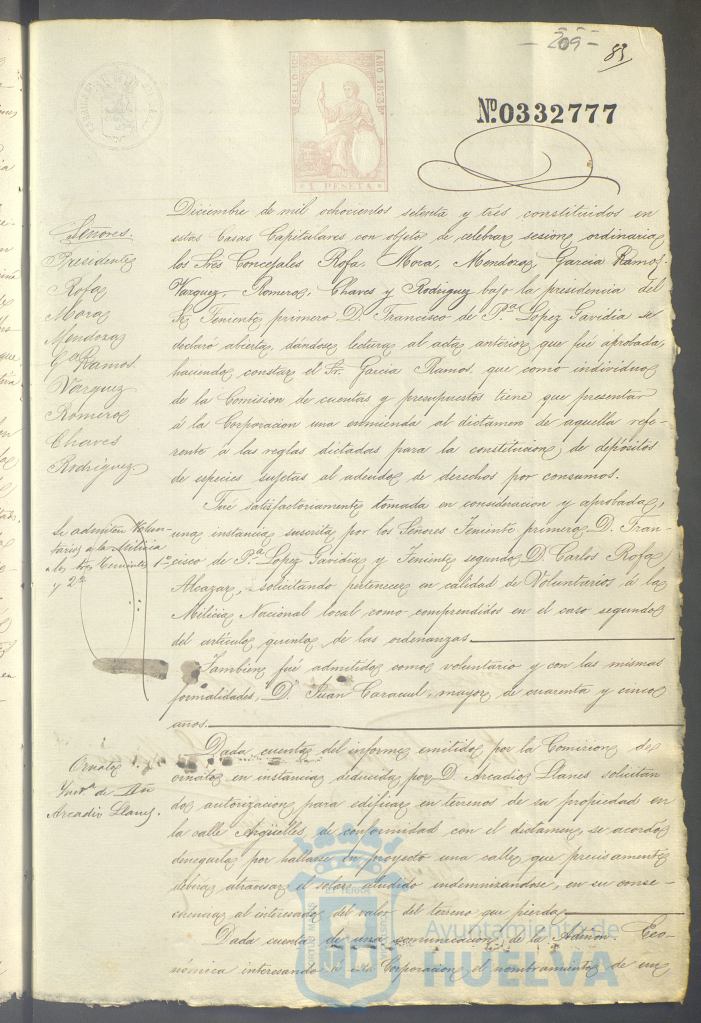 - 209 -
83
SELLO 11º
AÑO 1873
1 PESETA
Nº.0332777
Diciembre de mil ochocientos setenta y tres constituidos en
estas Casas Capitulares con objeto de celebrar sesion ordinaria
los Sres Concejales Rofa, Mora, Mendoza, Garcia Ramos,
Vazquez, Romero, Chaves y Rodriguez bajo la presidencia del
Sr. Teniente primero D. Francisco de P.ª Lopez Gavidia se
declaró abierta, dándose lectura al acta anterior que fué aprobada,
haciendo constar el Sr. Garcia Ramos que como individuo
de la Comision de cuentas y presupuestos tiene que presentar
á la Corporacion una enmienda al dictamen de aquella refe-
rente á las reglas dictadas para la constitucion de depósitos
de especies sujetas al adeudo de derechos por consumos.
Señores.
Presidente
Rofa
Mora
Mendoza
G.ª Ramos
Vazquez
Romero
Chaves
Rodriguez
Fué satisfactoriamente tomada en consideracion y aprobada,
una instancia suscrita por los Señores Teniente primero D. Fran-
cisco de P.ª Lopez Gavidia y Teniente segundo D. Carlos Rofa
Alcazar, solicitando pertenecer en calidad de Voluntarios á la
Milicia Nacional local como comprendidos en el caso segundo
del artículo quinto de las ordenanzas.
Se admiten Volun-
tarios a la Milicia
a los Sres Tenientes 1º
y 2º
Tambien fué admitido como voluntario y con las mismas
formalidades, Dn. Juan Caracuel, mayor de cuarenta y cinco
años.
Dada cuenta del informe emitido por la Comision de
ornato en instancia deducida por D. Arcadio Llanes solicitan
do autorizacion para edificar en terrenos de su propiedad en
la calle Argüelles, de conformidad con el dictamen, se acordó
denegarla por hallarse en proyecto una calle que precisamente
deberá atravesar el solar aludido indemnizándose, en su conse-
cuencia al interesado del valor del terreno que pierda.
Ornato
Inst.ª de Don
Arcadio Llanes.
Dada cuenta de una comunicacion de la Admon. Eco-
nómica interesando á esta Corporacion el nombramiento de un
Ayuntamiento de
HUELVA